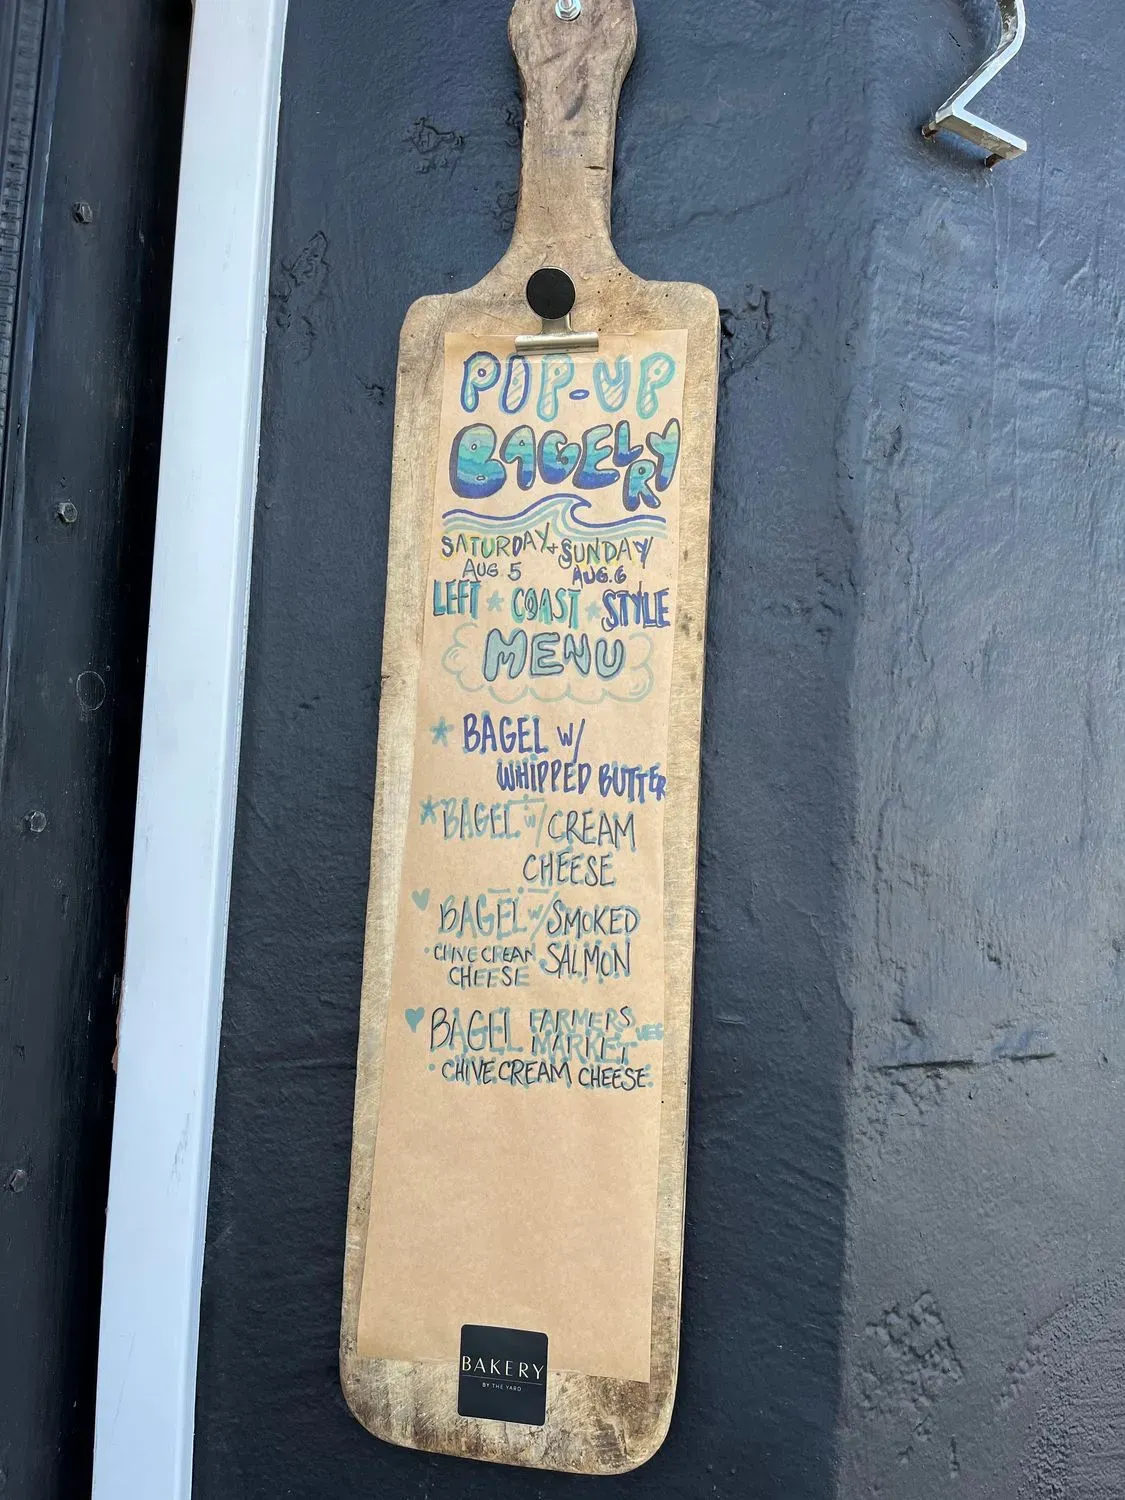 POP-UP
BAGELRY
SATURDAY + SUNDAY
AUG. 5 AUG. 6
LEFT * COAST * STYLE
MENU
* BAGEL W/
WHIPPED BUTTER
* BAGEL W/ CREAM
CHEESE
♥ BAGEL W/ SMOKED
SALMON
· CHIVE CREAM
CHEESE
♥ BAGEL FARMERS
MARKET VEG
· CHIVE CREAM CHEESE
BAKERY
BY THE YARD